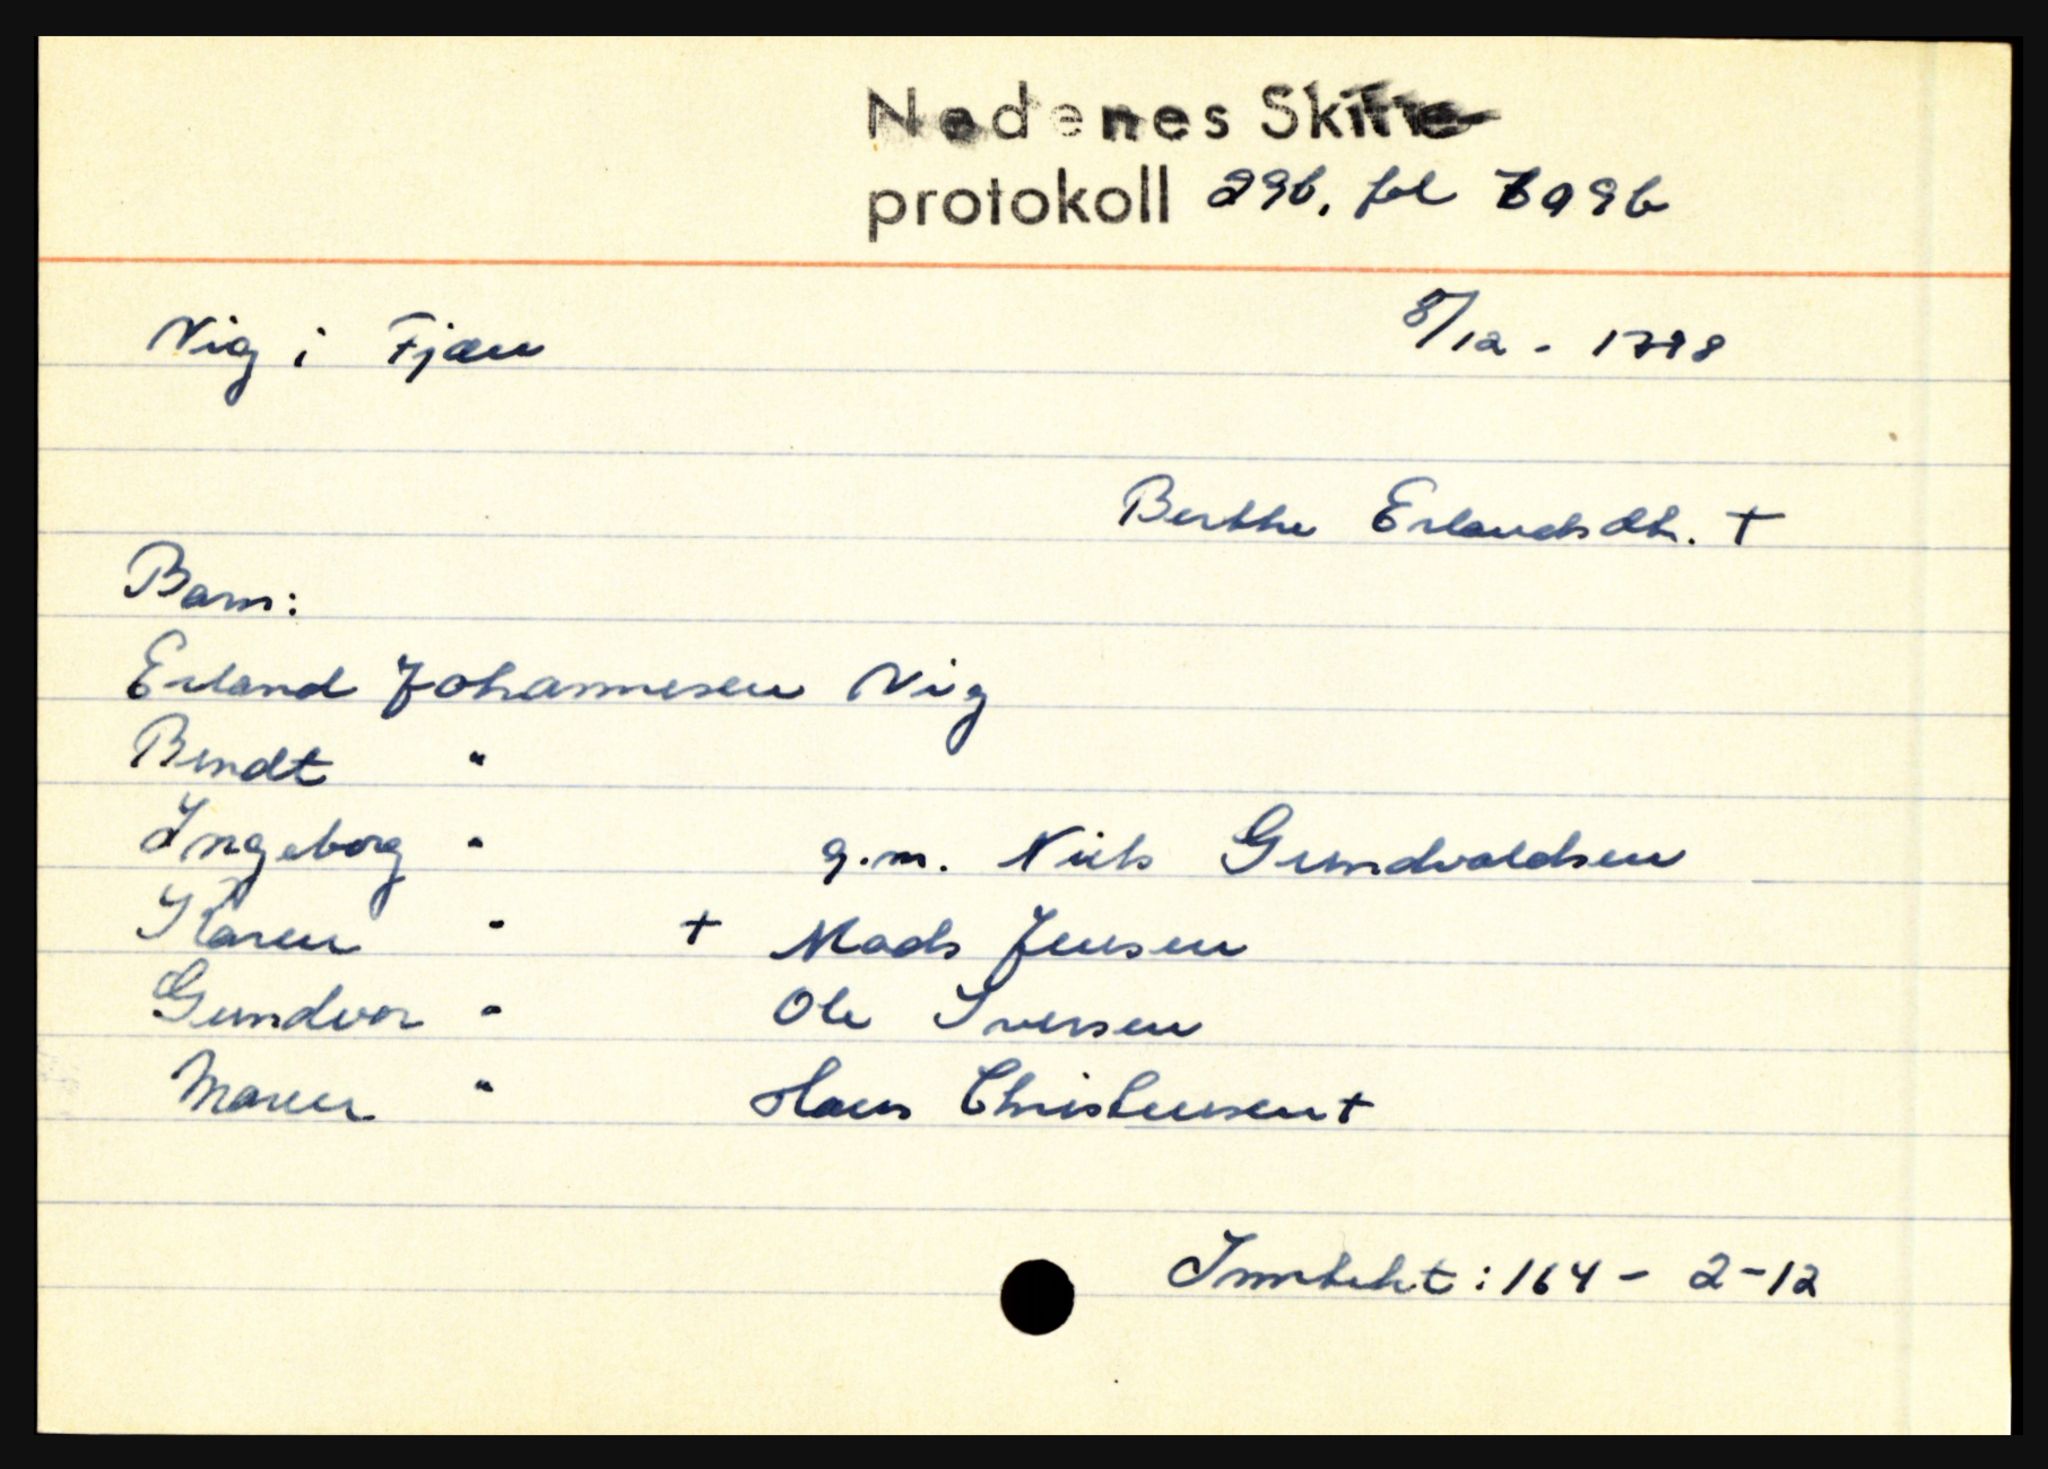 Nedenes Skifte
protokoll 29b, fol 699b
Vig i Fjære 8/12 - 1798
Berthe Erlandsdtr. +
Barn:
Erland Johannesen Vig
Bendt "
Ingeborg " g.m. Niels Gundvaldsen
Karen " + Mads Jensen
Gundvor " Ole Iversen
Maren " Hans Christensen +
Inntekt: 164 - 2 - 12